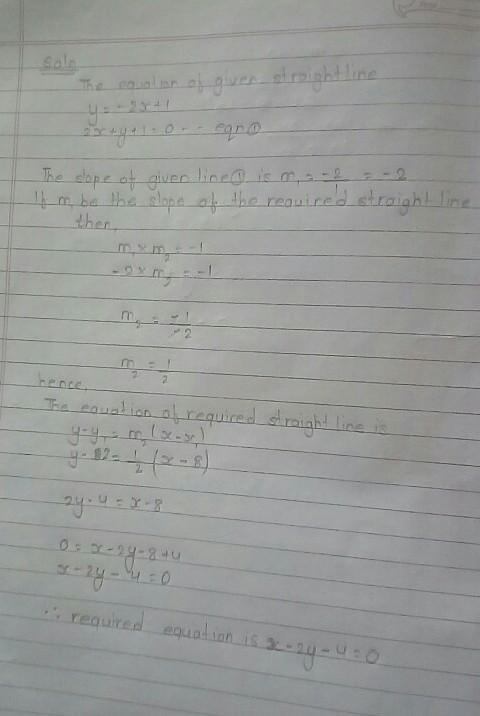 Soln
The equation of given straight line
y = -2x+1
2x+y+1=0 -- eqn①
The slope of given line① is m₁ = -2/1 = -2
If m₂ be the slope of the required straight line
then,
m₁ x m₂ = -1
-2 x m₂ = -1
m₂ = -1/-2
m₂ = 1/2
hence,
The equation of required straight line is
y-y₁ = m₂(x-x₁)
y-2 = 1/2 (x-8)
2y-4 = x-8
0 = x-2y-8+4
x-2y-4=0
∴ required equation is x-2y-4=0